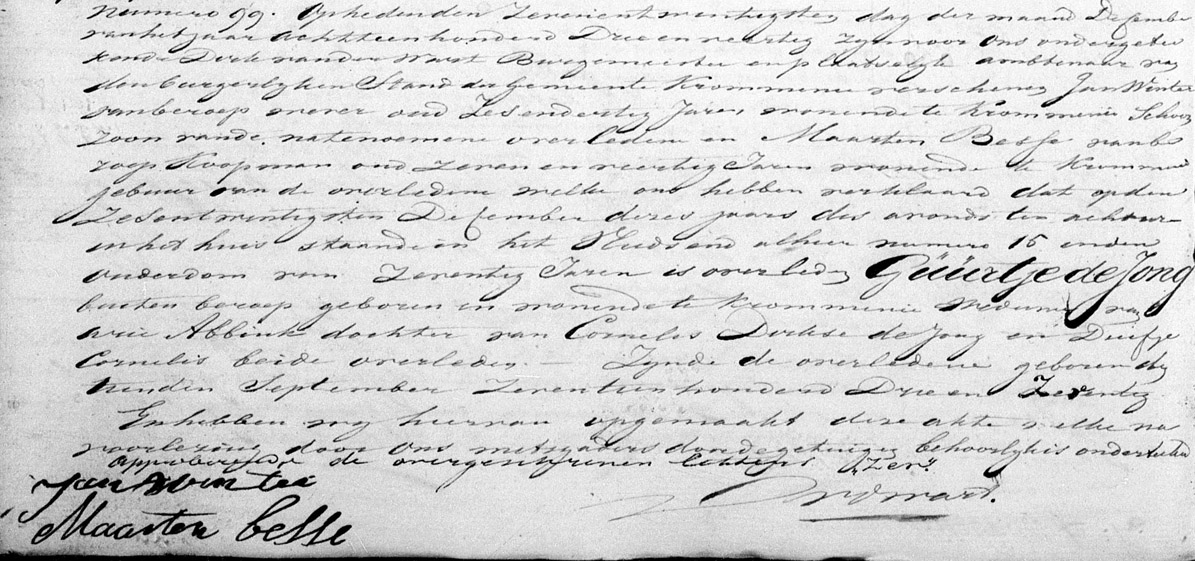 Numero 99. Op heden den Zevenentwintigsten dag der maand December
van het jaar achttienhonderd Drie en veertig zyn voor ons ondergetee
kende Dirk van der Wart Burgemeester en plaatselyk ambtenaar van
den burgerlyken Stand der gemeente Krommenie verschenen Jan Winter
van beroep wever oud Zesendertig Jaren wonende te Krommenie Schoon
zoon van de natenoemene overledene en Maarten Besse van be
roep Koopman oud Zeven en veertig Jaren wonende te Kromme
gebuur van de overledene welke ons hebben verklaard dat op den
Zesentwintigsten December dezes jaars des avonds ten acht ure
in het huis staande in het Zuidseend alhier numero 16 in den
ouderdom van Zeventig Jaren is overleden Güürtje de Jong
buiten beroep geboren en wonende te Krommenie weduwe van
Arie Abbink dochter van Cornelis Dirkse de Jong en Duifje
Cornelis beide overleden — Zynde de overledene geboren den
September Zeventienhonderd Drie en Zeventig
En hebben wy hiervan opgemaakt deze akte welke na
voorlezing door ons mitsgaders door de getuigen behoorlyk is onderteekend
approberende de overgeschrevenen letters "Zev"
Jan Winter
Maarten besse